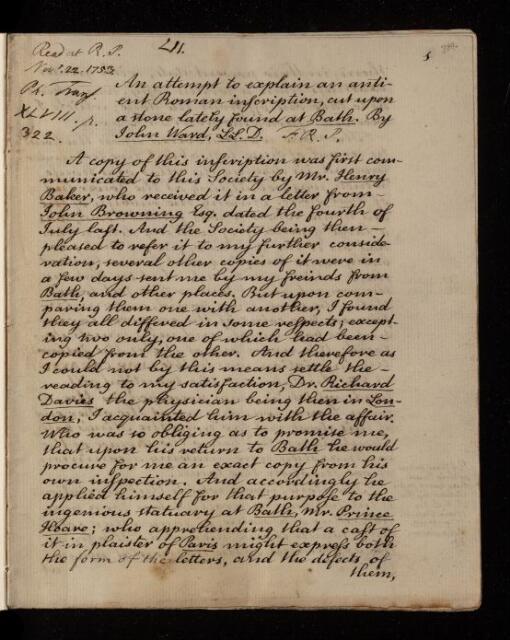 Read at R. S.
LII.
5
Nov.r 22. 1753.
Ph. Trans.
XLVIII. p.
322.
An attempt to explain an anti-
ent Roman inscription, cut upon
a stone lately found at Bath. By
John Ward, LL.D. F R. S.
A copy of this inscription was first com-
municated to this Society by Mr. Henry
Baker, who received it in a letter from
John Browning Esq. dated the fourth of
July last. And the Society being then
pleased to refer it to my further conside-
ration, several other copies of it were in
a few days sent me by my freinds from
Bath, and other places. But upon com-
paring them one with another, I found
they all differed in some respects; except-
ing two only, one of which had been
copied from the other. And therefore as
I could not by this means settle the
reading to my satisfaction, Dr. Richard
Davies the physician being then in Lon-
don, I acquainted him with the affair.
Who was so obliging as to promise me,
that upon his return to Bath he would
procure for me an exact copy from his
own inspection. And accordingly he
applied himself for that purpose to the
ingenious statuary at Bath, Mr. Prince
Hoare; who apprehending that a cast of
it in plaister of Paris might express both
the form of the letters, and the defects of
them,